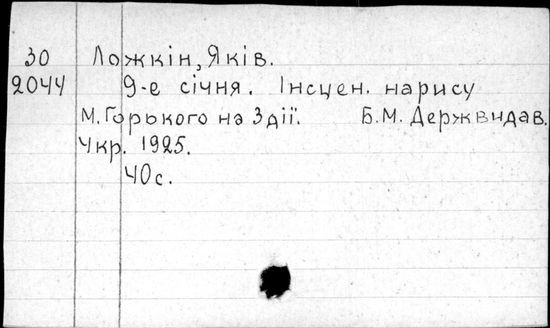 30 Ложкін, Яків.
2044 9-е січня. Інсцен. нарису
М. Горького на 3 дії. Б.М. Держвидав.
Укр. 1925.
40с.